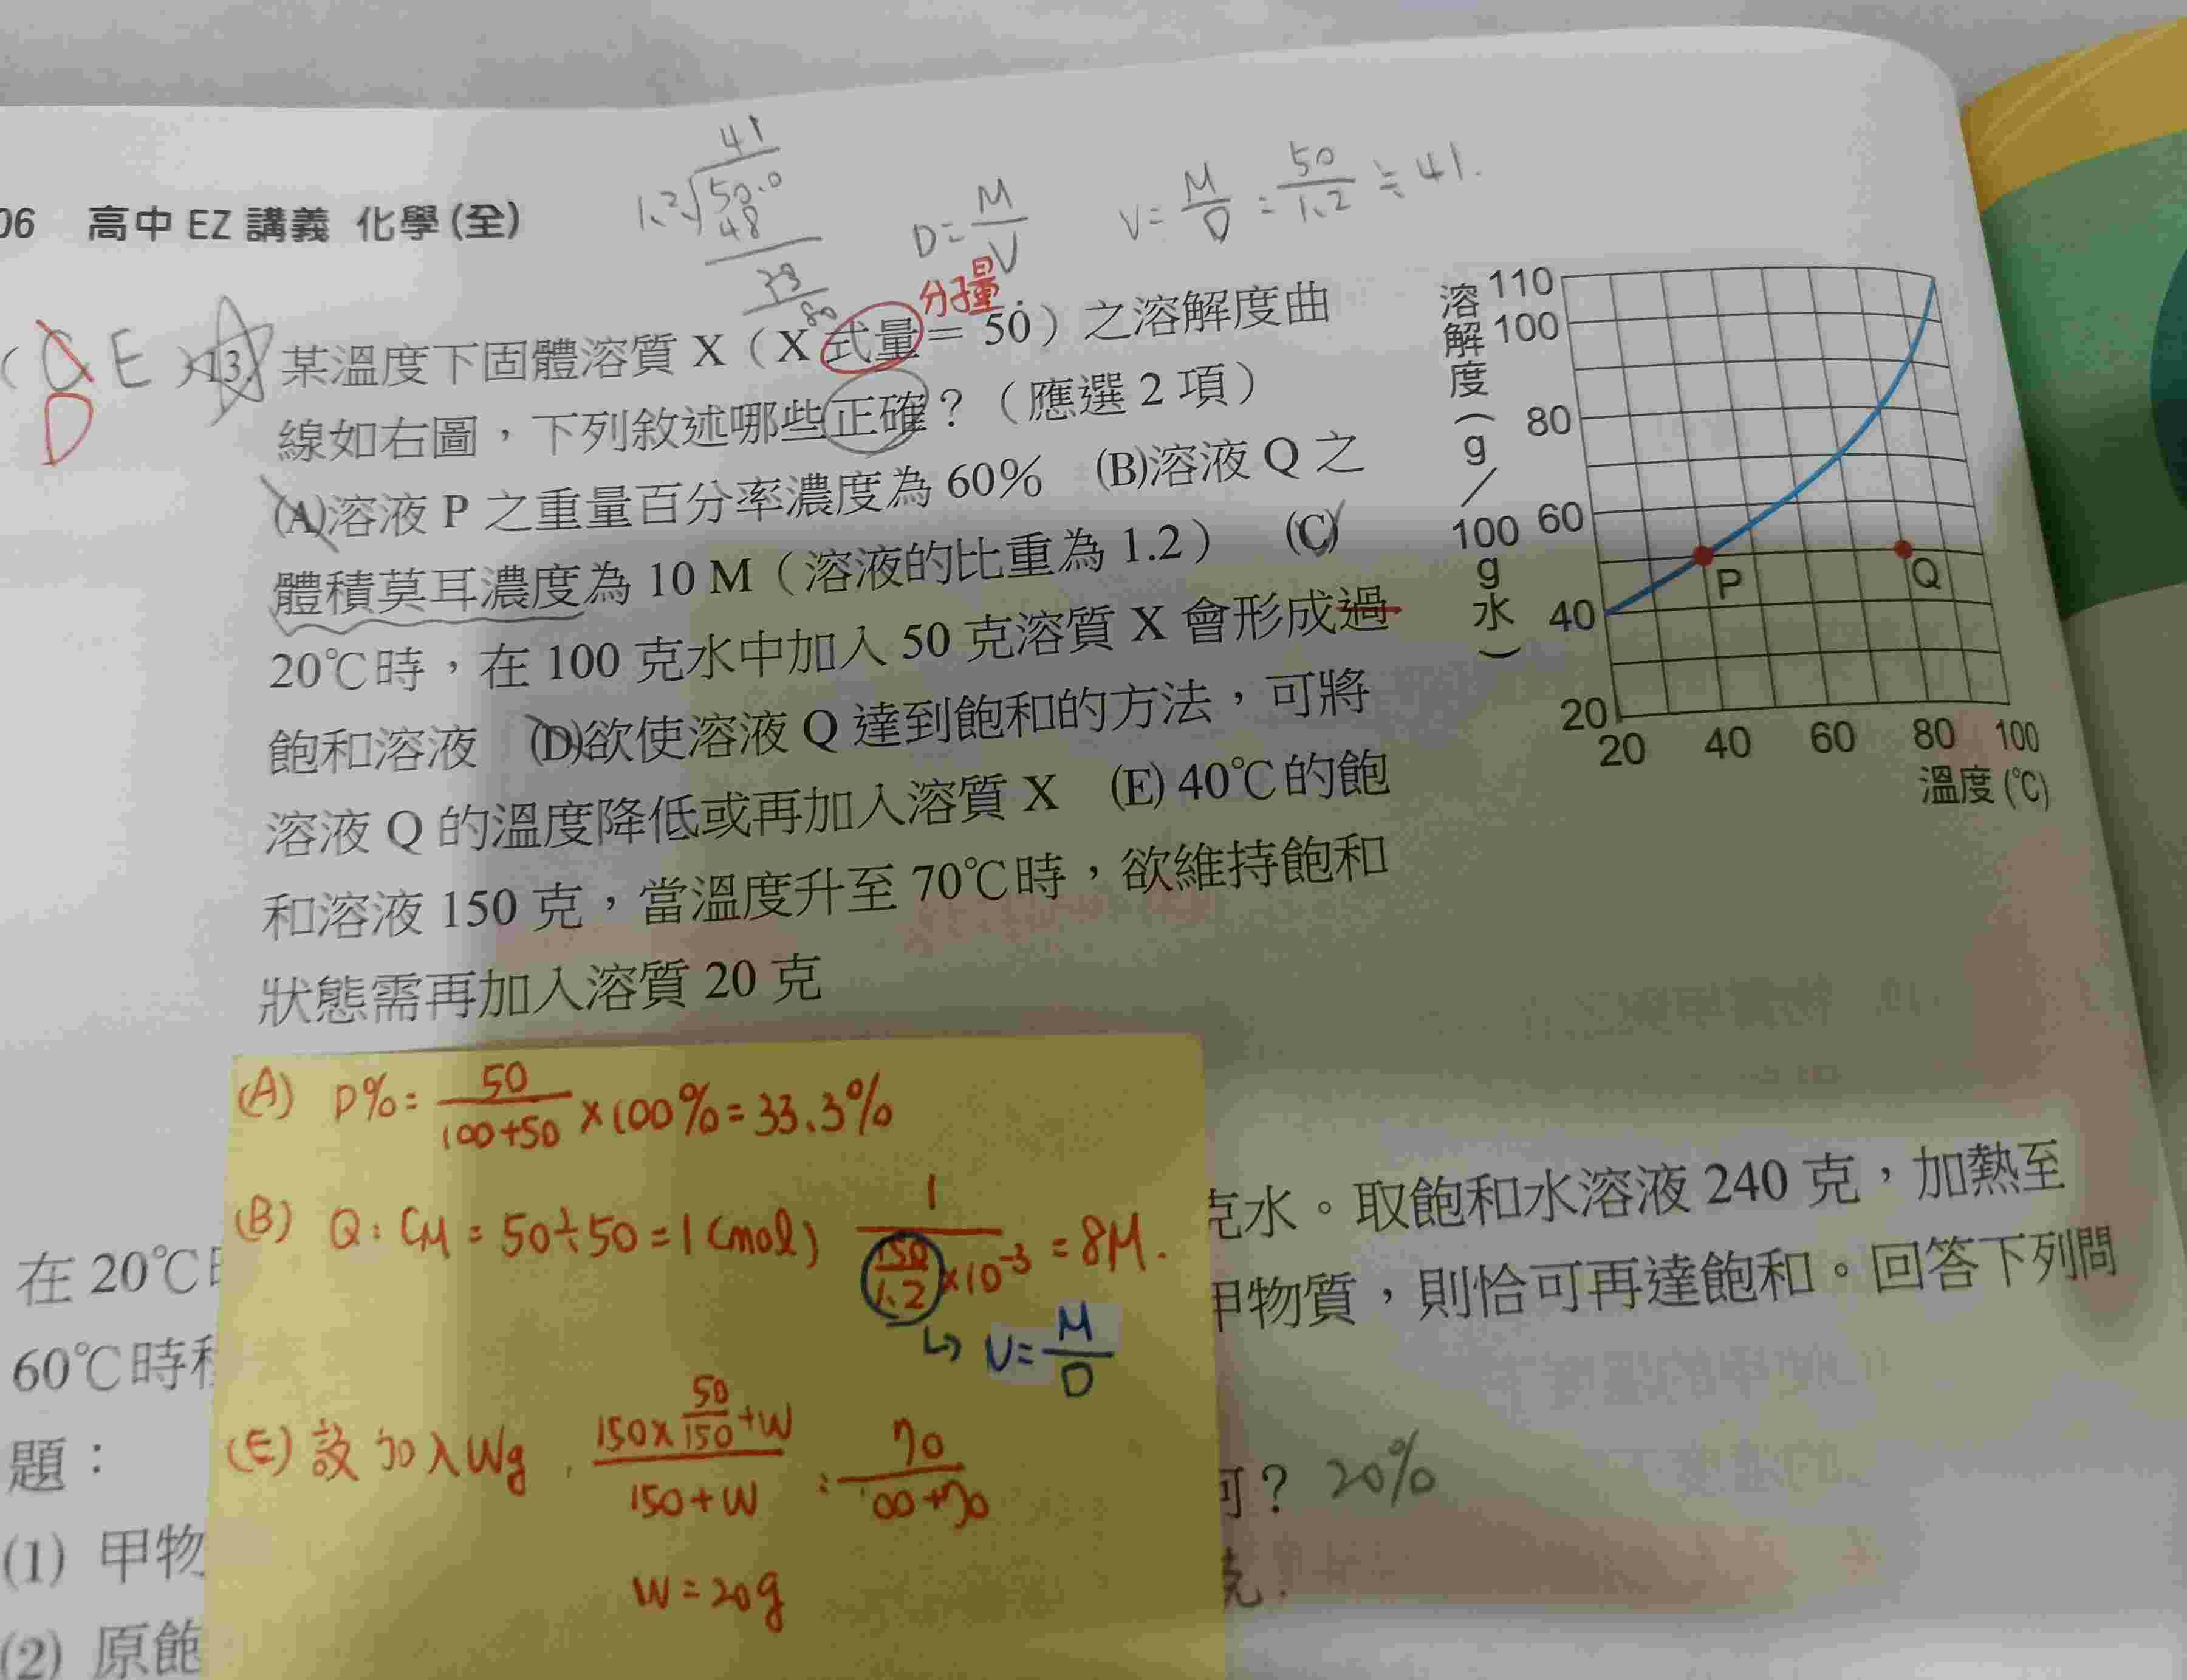 41
1.2√50.0
48
D=M/V
V=M/D=50/1.2≒41.
06 高中 EZ 講義 化學(全)
分子量
(C E)13. 某溫度下固體溶質 X（X 式量＝50）之溶解度曲
D
線如右圖，下列敘述哪些正確？（應選 2 項）
(A)溶液 P 之重量百分率濃度為 60% (B)溶液 Q 之
體積莫耳濃度為 10 M（溶液的比重為 1.2） (C)
20℃時，在 100 克水中加入 50 克溶質 X 會形成過
飽和溶液 (D)欲使溶液 Q 達到飽和的方法，可將
溶液 Q 的溫度降低或再加入溶質 X (E) 40℃的飽
和溶液 150 克，當溫度升至 70℃時，欲維持飽和
狀態需再加入溶質 20 克
溶解度（g／100 g 水）
110
100
80
60
40
20
P
Q
20 40 60 80 100
溫度(℃)
(A) P%=50/(100+50)×100%=33.3%
(B) Q:CM=50÷50=1(mol) 1/(150/1.2×10⁻³)=8M.
↳ V=M/D
(E) 設加入Wg. (150×50/150+W)/(150+W)=70/(100+70)
W=20g
克水。取飽和水溶液 240 克，加熱至
在 20℃
甲物質，則恰可再達飽和。回答下列問
60℃時
題：
可？ 20%
(1) 甲物
克.
(2) 原飽